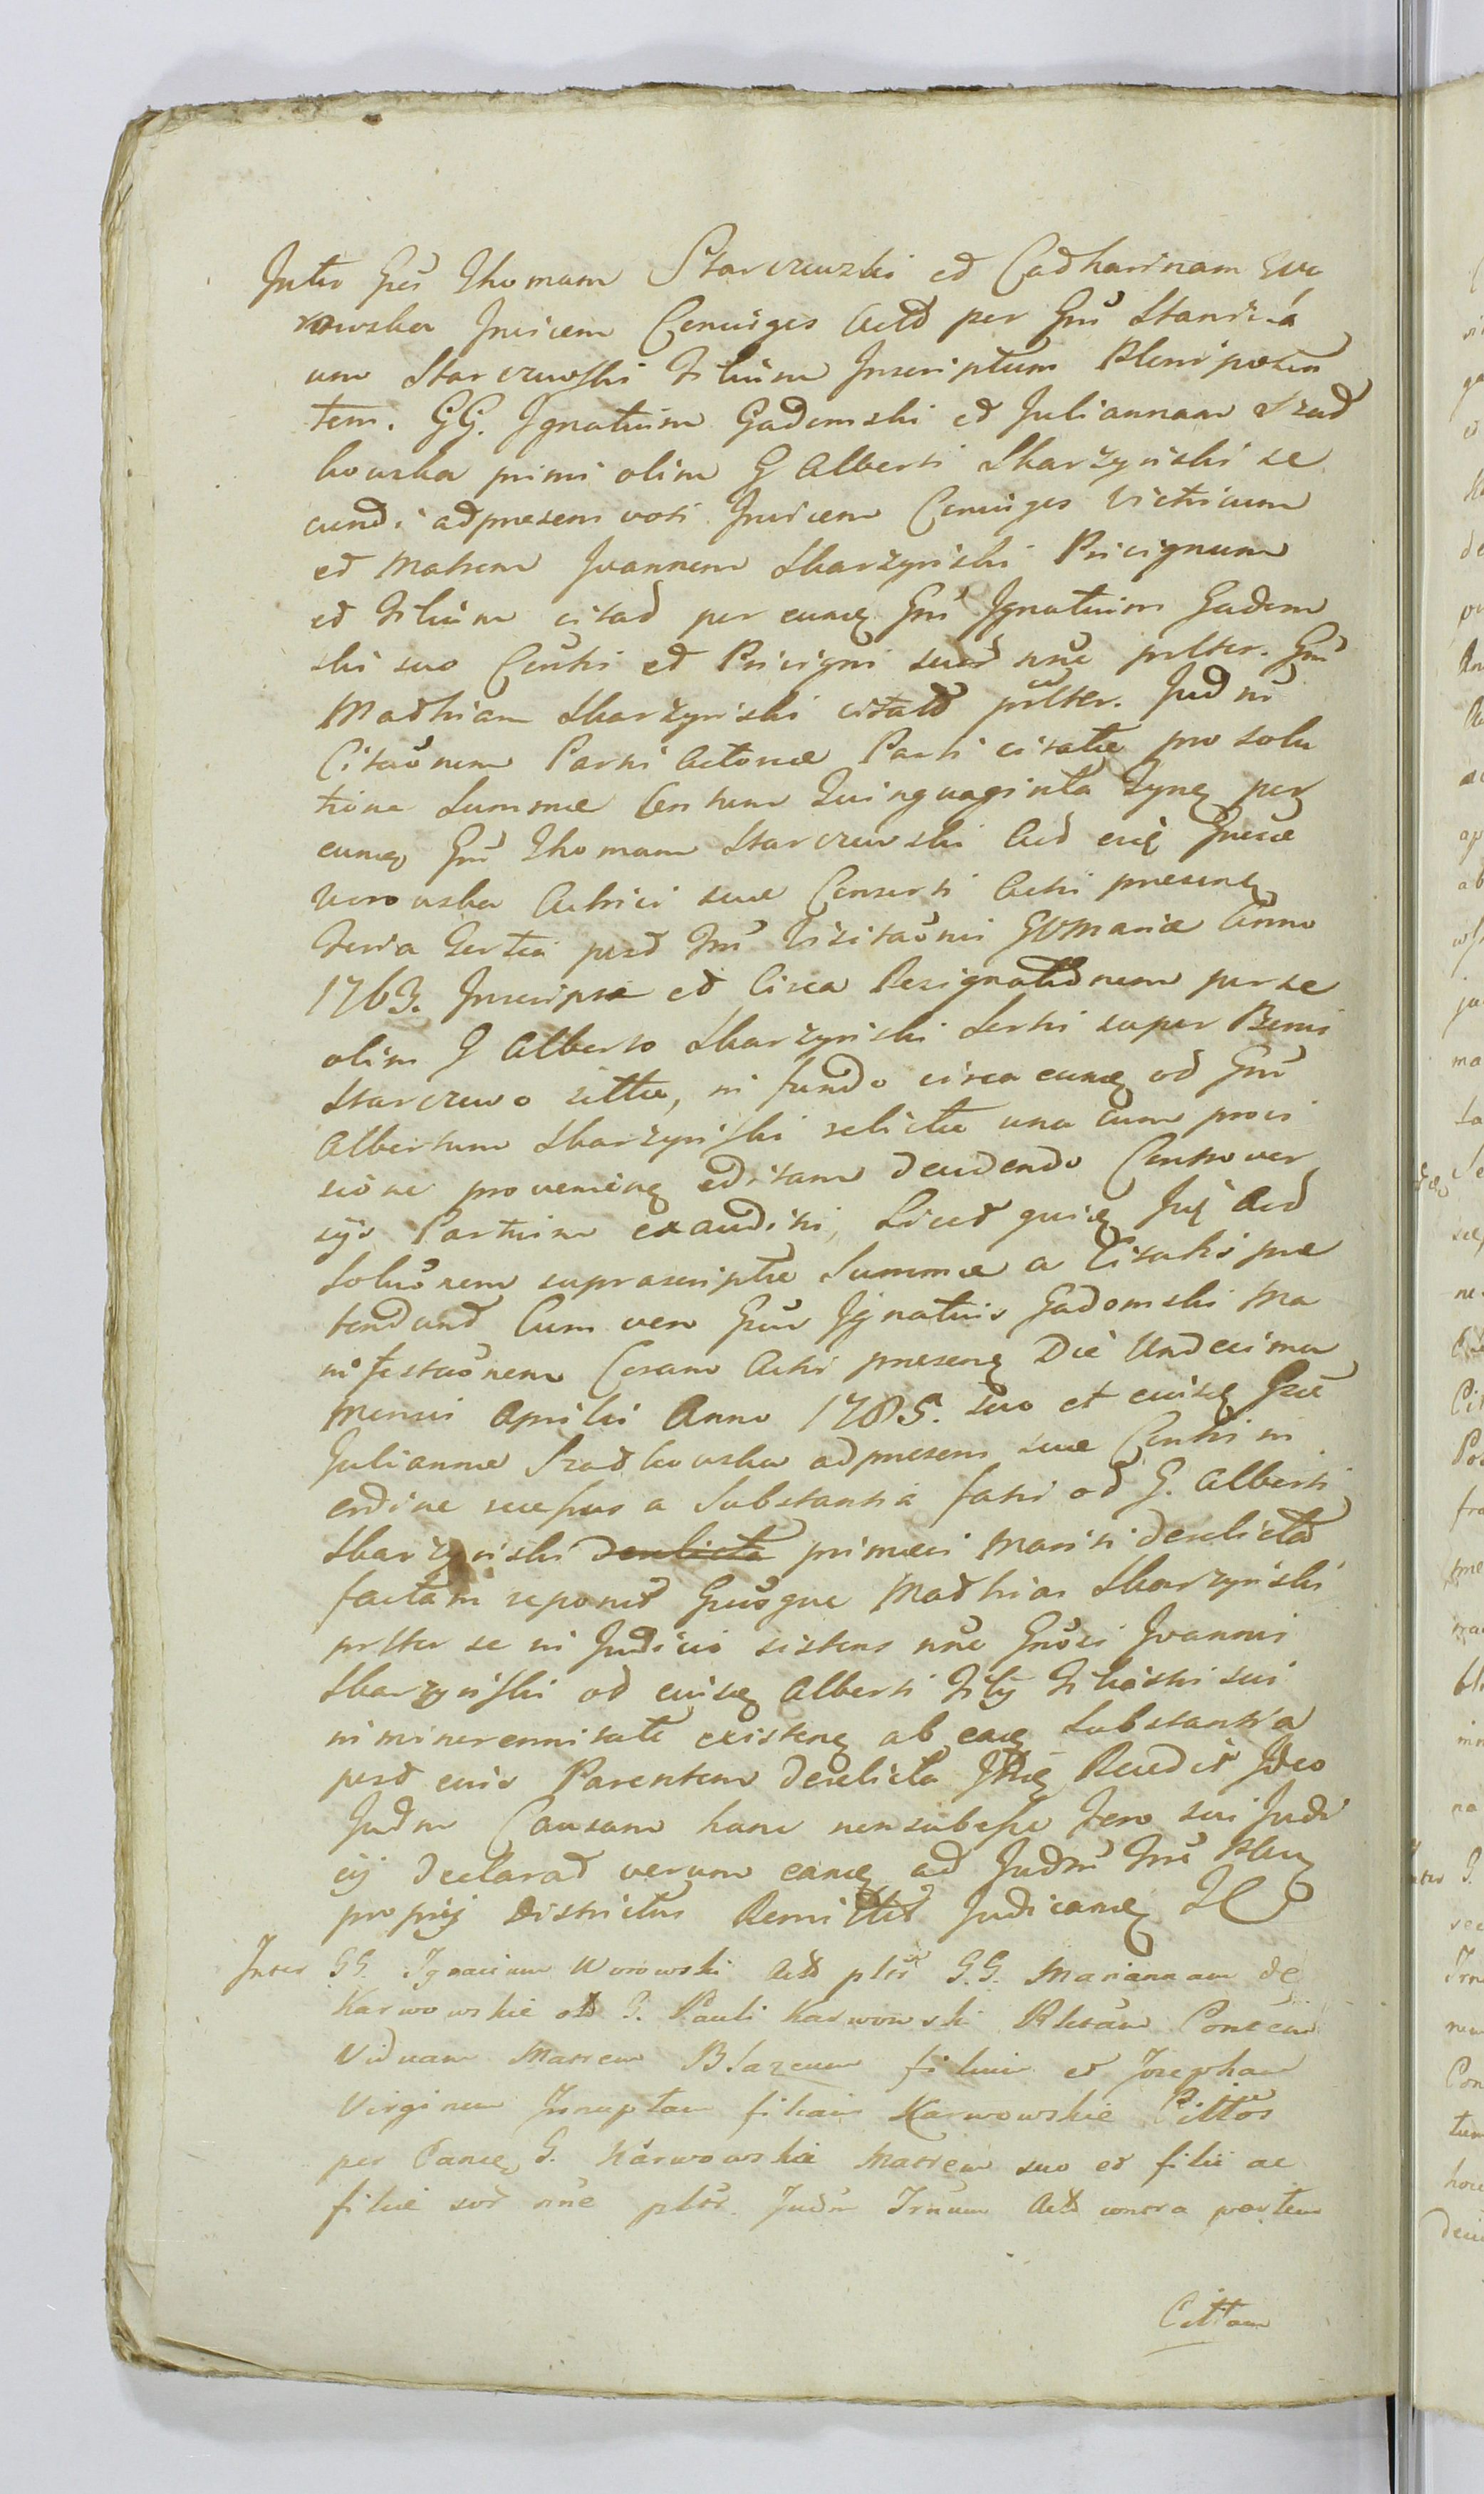 Inter Gēs Thomam Starczewski et Catharinam Wo
rowska Invicem Coniuges Actō per Gm̄ Stanisla
um Starczewski Filium Inscriptum Plenipoten
tem. GG. Ignatium Gadomski et Juliannam Szad
kowska primi olim G Alberti Skarzynski se
cundi adpresens voti Invicem Coniuges Vitricum
et Matrem Joannem Skarzynski Privignum
et Filium citat per eumq Gm̄ Ignatium Gadom
ski suo Conthi et Privigni suor̄ nn̄e prlter. Gm̄
Mathiam Skarzynski citatō prlter. Jud in
Citaōnem Parti Actorea Parti citatæ pro solu
tione Summæ Centum Quinquaginta Tynq per
eumq Gm̄ Thomam Starczewski Aud eiq Gnesæ
Worowska Actrici suæ Consorti Acti presenq
Feria Tertia post Fm̄ Visitaōnis GVMariæ Anno
1763. Inscripta et Circa Resignatōnem per se
olim G Alberto Skarzynski Serti super Bonis
Starczewo sittæ, in fundo circa eumq od Gm̄
Albertum Skarzynski relictæ una cum provi
sione provenienq editam deudendo Controver
sys Partium exauditi, Licet quiq Juq Aud
Soluōnem suprascriptæ Summæ a Citatis præ
tendund Cum vero Gsūs Ignatius Gadomski Ma
nifestaōnem Coram Actis presenq Die Undecima
Mensis Aprilis Anno 1785. suo et eiusq Gsæ
Julianna Szadkowska adpresens suæ Conthi in
ordine recessus a Substantia fati od G. Alberti
Skarzynski derelicta primævi Mariti derelictō
factam reponit Gsūsque Mathias Skarzynski
prlter se in Judicio sistens nn̄e Gnōsi Joannis
Skarzynski od eiusq Alberti Filij Filiastri sui
in minorennitate existenq ab eaq Substantia
post eius Parentem derelicta Ittiq Recedit Ideo
Judm Causam hanc non subesse Foro sui Judi
cij declarat verum eamq ad Judm̄ Trr̄e Plenq
proprij Districtus Remittit Judicanq
Inter GG. Ignacium Worowski Actō plōr̄ G.G. Mariannam de
Karwowskie od G. Pauli Karwowski Rlictam Consem
Viduam Matrem Blazeum filium et Josepham
Virginem Innuptam filiam Karwowskie Cittōs
per Eamq G. Karwowska Matrem suo et filii ac
filiæ sor̄ nn̄e plōr̄. Judm̄ Trr̄um Actō contra partem
Cittam